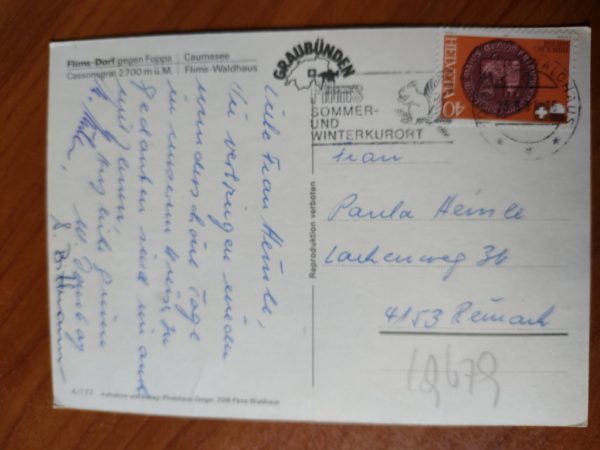 Flims-Dorf gegen Foppa
Cassonsgrat 2700 m ü.M.
Caumasee
Flims-Waldhaus
GRAUBÜNDEN
FLIMS
SOMMER-
UND
WINTERKURORT
HELVETIA
40
Liebe Frau Heinle,
Wir verbringen wieder
wunderschöne Tage
in unserem
Gedanken sind wir auch
mit Ihnen
liebe Grüsse
Frau
Paula Heinle
Lachenweg 36
4153 Reinach
19679
Reproduktion verboten
4/177
Aufnahme und Verlag: Photohaus Geiger, 7018 Flims-Waldhaus